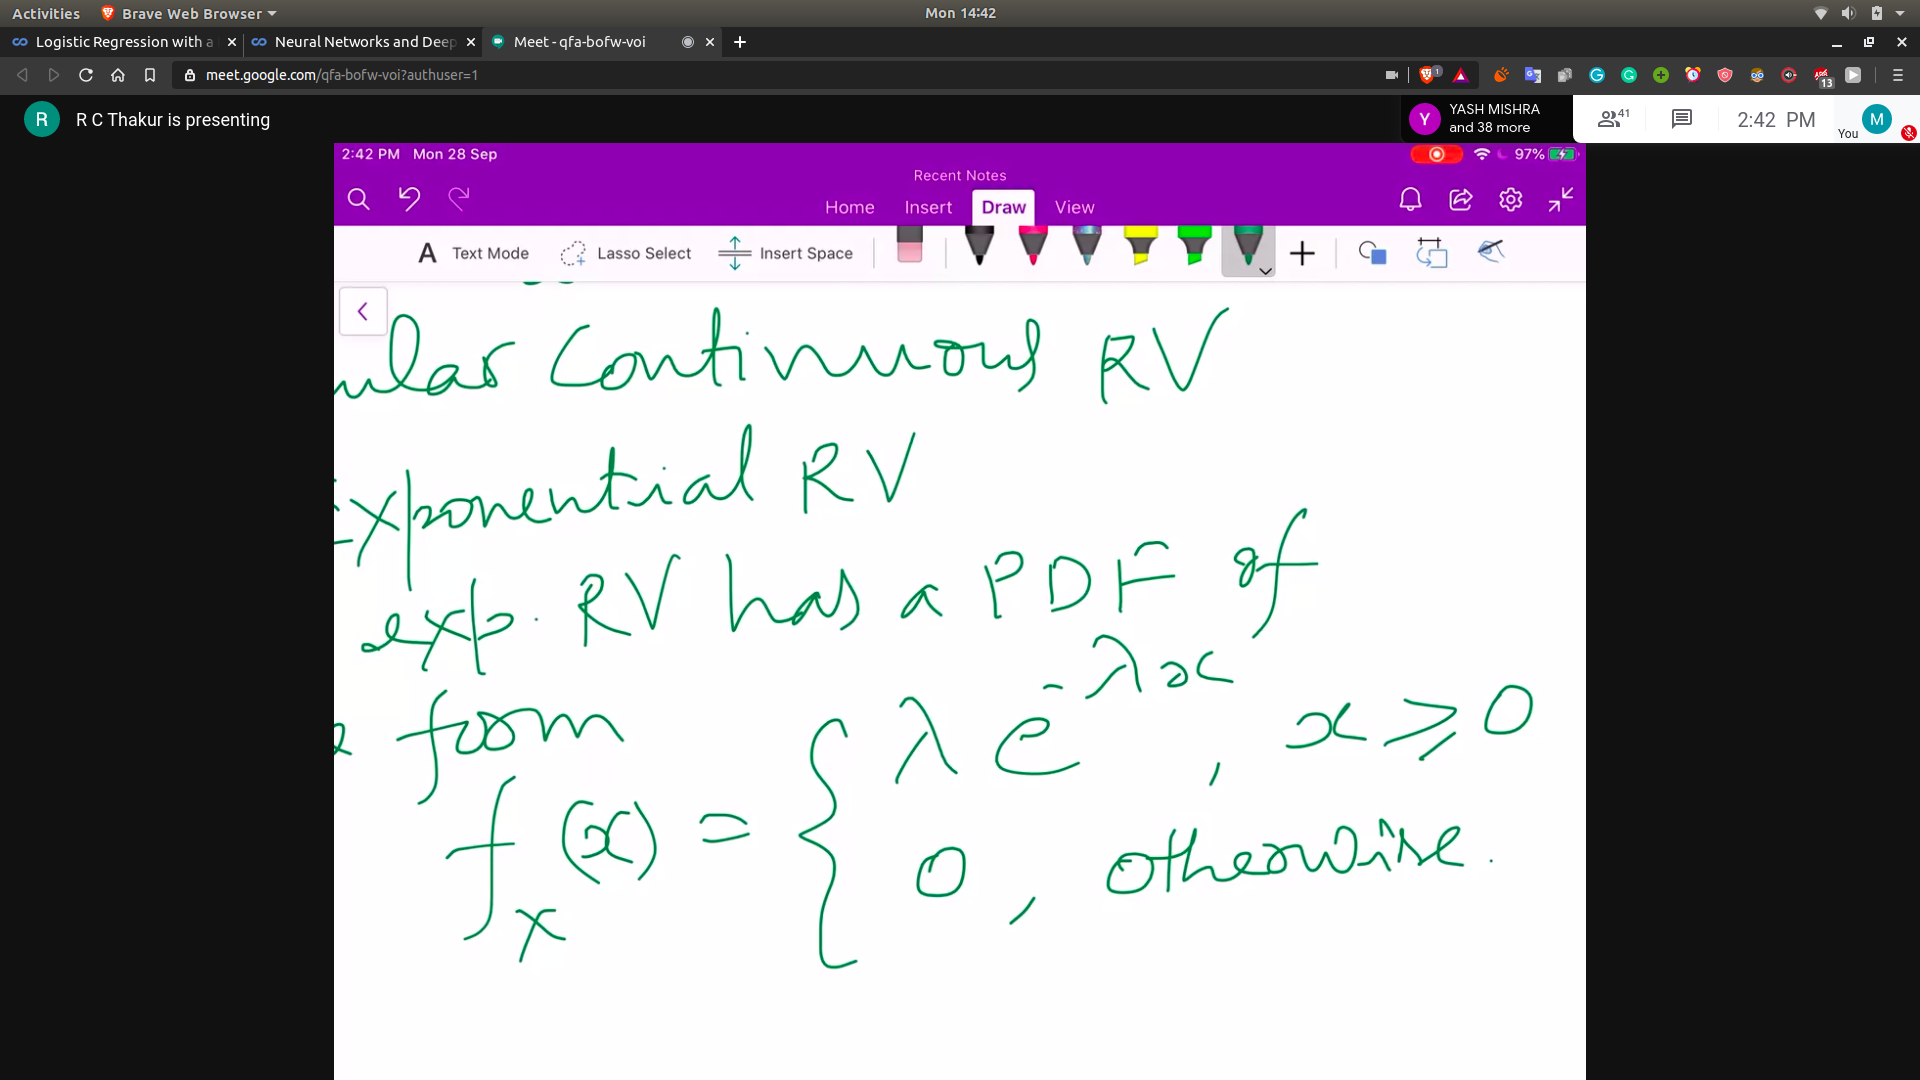 Activities Brave Web Browser Mon 14:42
Logistic Regression with a Neural Networks and Deep Meet - qfa-bofw-voi
meet.google.com/qfa-bofw-voi?authuser=1 1 13
R R C Thakur is presenting
Y YASH MISHRA
and 38 more
41 2:42 PM You M
2:42 PM Mon 28 Sep 97%
Recent Notes
Home Insert Draw View
A Text Mode Lasso Select Insert Space
ular Continuous RV
Exponential RV
exp. RV has a PDF of
form
λ e^{-λx}, x ⩾ 0
f_X (x) = {
0, otherwise.